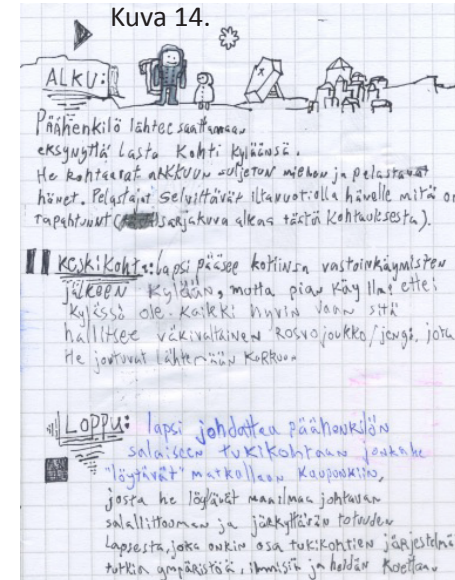 Kuva 14.
ALKU:
Päähenkilö lähtee saattamaan
eksynyttä lasta kohti kyläänsä.
He kohtaavat arkkuun suljetun miehen ja pelastavat
hänet. Pelastajat selvittävät iltanuotiolla hänelle mitä on
tapahtunut (sarjakuva alkaa tästä kohtauksesta).
Keskikohta: lapsi pääsee kotiinsa vastoinkäymisten
jälkeen kylään, mutta pian käy ilmi ettei
kylässä ole kaikki hyvin vaan sitä
hallitsee väkivaltainen rosvojoukko/jengi, jota
He joutuvat lähtemään karkuun
Loppu: lapsi johdattaa päähenkilön
salaiseen tukikohtaan jonka he
"löytävät" matkallaan kaupunkiin,
josta he löytävät maailmaa johtavan
salaliittooman ja järkyttävän totuuden
Lapsesta, joka onkin osa tukikohtien järjestelmä
tutkia ympäristöä, ihmisiä ja heidän